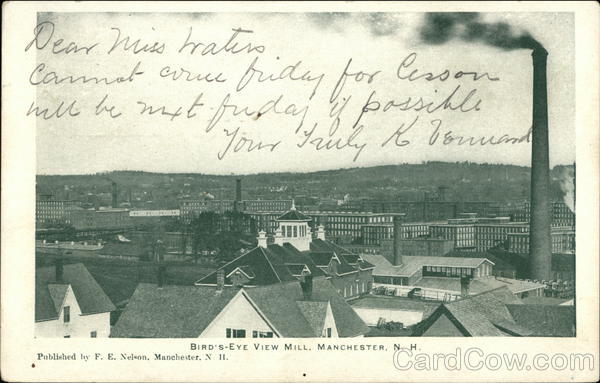 Dear Miss Waters
Cannot come friday for Cesson
will be next friday if possible
Your Truly K Vennard
Bird's-Eye View Mill, Manchester, N. H.
Published by F. E. Nelson, Manchester, N. H.
CardCow.com